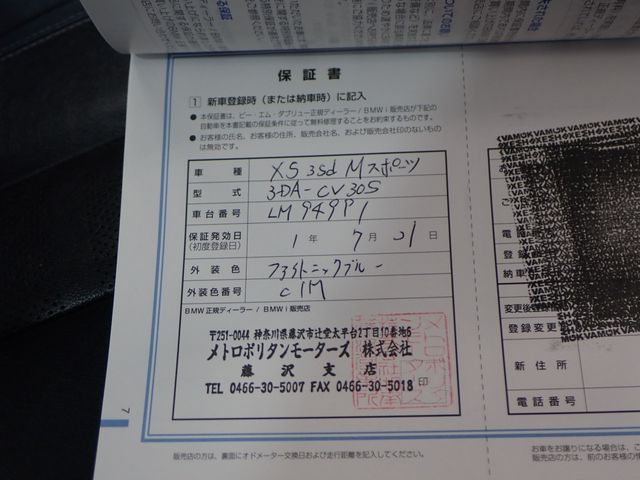 保証書
1 新車登録時(または納車時)に記入
● 本保証書は、ビー・エム・ダブリュー正規ディーラー/BMW i 販売店が下記の
自動車を本書記載の保証条件に従って無料修理することをお約束するものです。
● お客様の氏名、お客様の住所、販売会社名、および販売会社印のないもの
は無効です。
車種 X5 35d Mスポーツ
型式 3DA-CV30S
車台番号 LM949P1
保証発効日 1年 7月 21日
(初度登録日)
外装色 ファイトニックブルー
外装色番号 C1M
BMW 正規ディーラー / BMW i 販売店
〒251-0044 神奈川県藤沢市辻堂太平台2丁目10番地6
メトロポリタンモーターズ 株式会社
藤沢支店
TEL 0466-30-5007 FAX 0466-30-5018
印
7
販売店の方は、裏面にオドメーター交換日および走行距離を記入してください。
電
登録
納車
変更後
登録変更
新住所
電話番号
お車をお譲りになる場合は、こ
販売店の方は、前のお客様の情